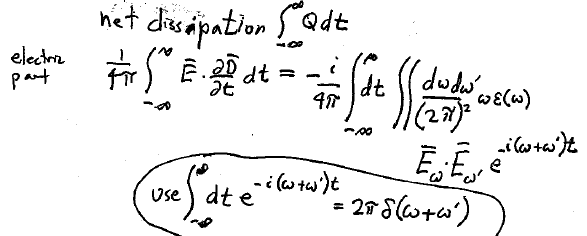 net dissipation ∫_{-∞}^{∞} Q dt
electric part
1/4π ∫_{-∞}^{∞} Ē · ∂D̄/∂t dt = -i/4π ∫_{-∞}^{∞} dt ∬ dω dω'/(2π)² ω ε(ω)
Ē_ω · Ē_ω' e^{-i(ω+ω')t}
use ∫_{-∞}^{∞} dt e^{-i(ω+ω')t} = 2π δ(ω+ω')